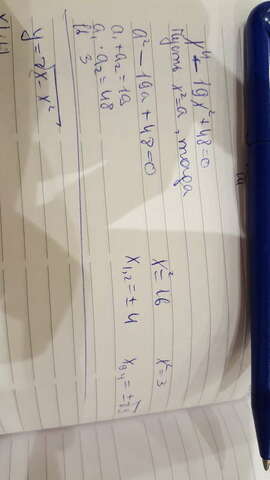 x⁴ - 19x² + 48 = 0
Пусть x² = a, тогда
a² - 19a + 48 = 0
a₁ + a₂ = 19
a₁ · a₂ = 48
16 3
x² = 16 x² = 3
x₁,₂ = ± 4 x₃,₄ = ± √3
y = 2x - x²